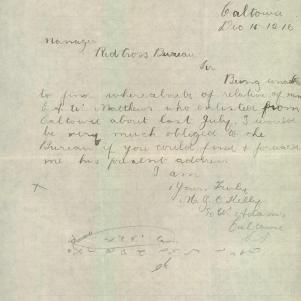 Caltowie
Dec 16-1916
Manager
Red Cross Bureau
Sir
Being unable
to find whereabouts of relative of mine
E. W. Matthews who enlisted from
Caltowie about last July, I would
be very much obliged to the
Bureau if you could find & forward
me his present address
I am
Yours Truly
Kelly
Adams
Caltowie